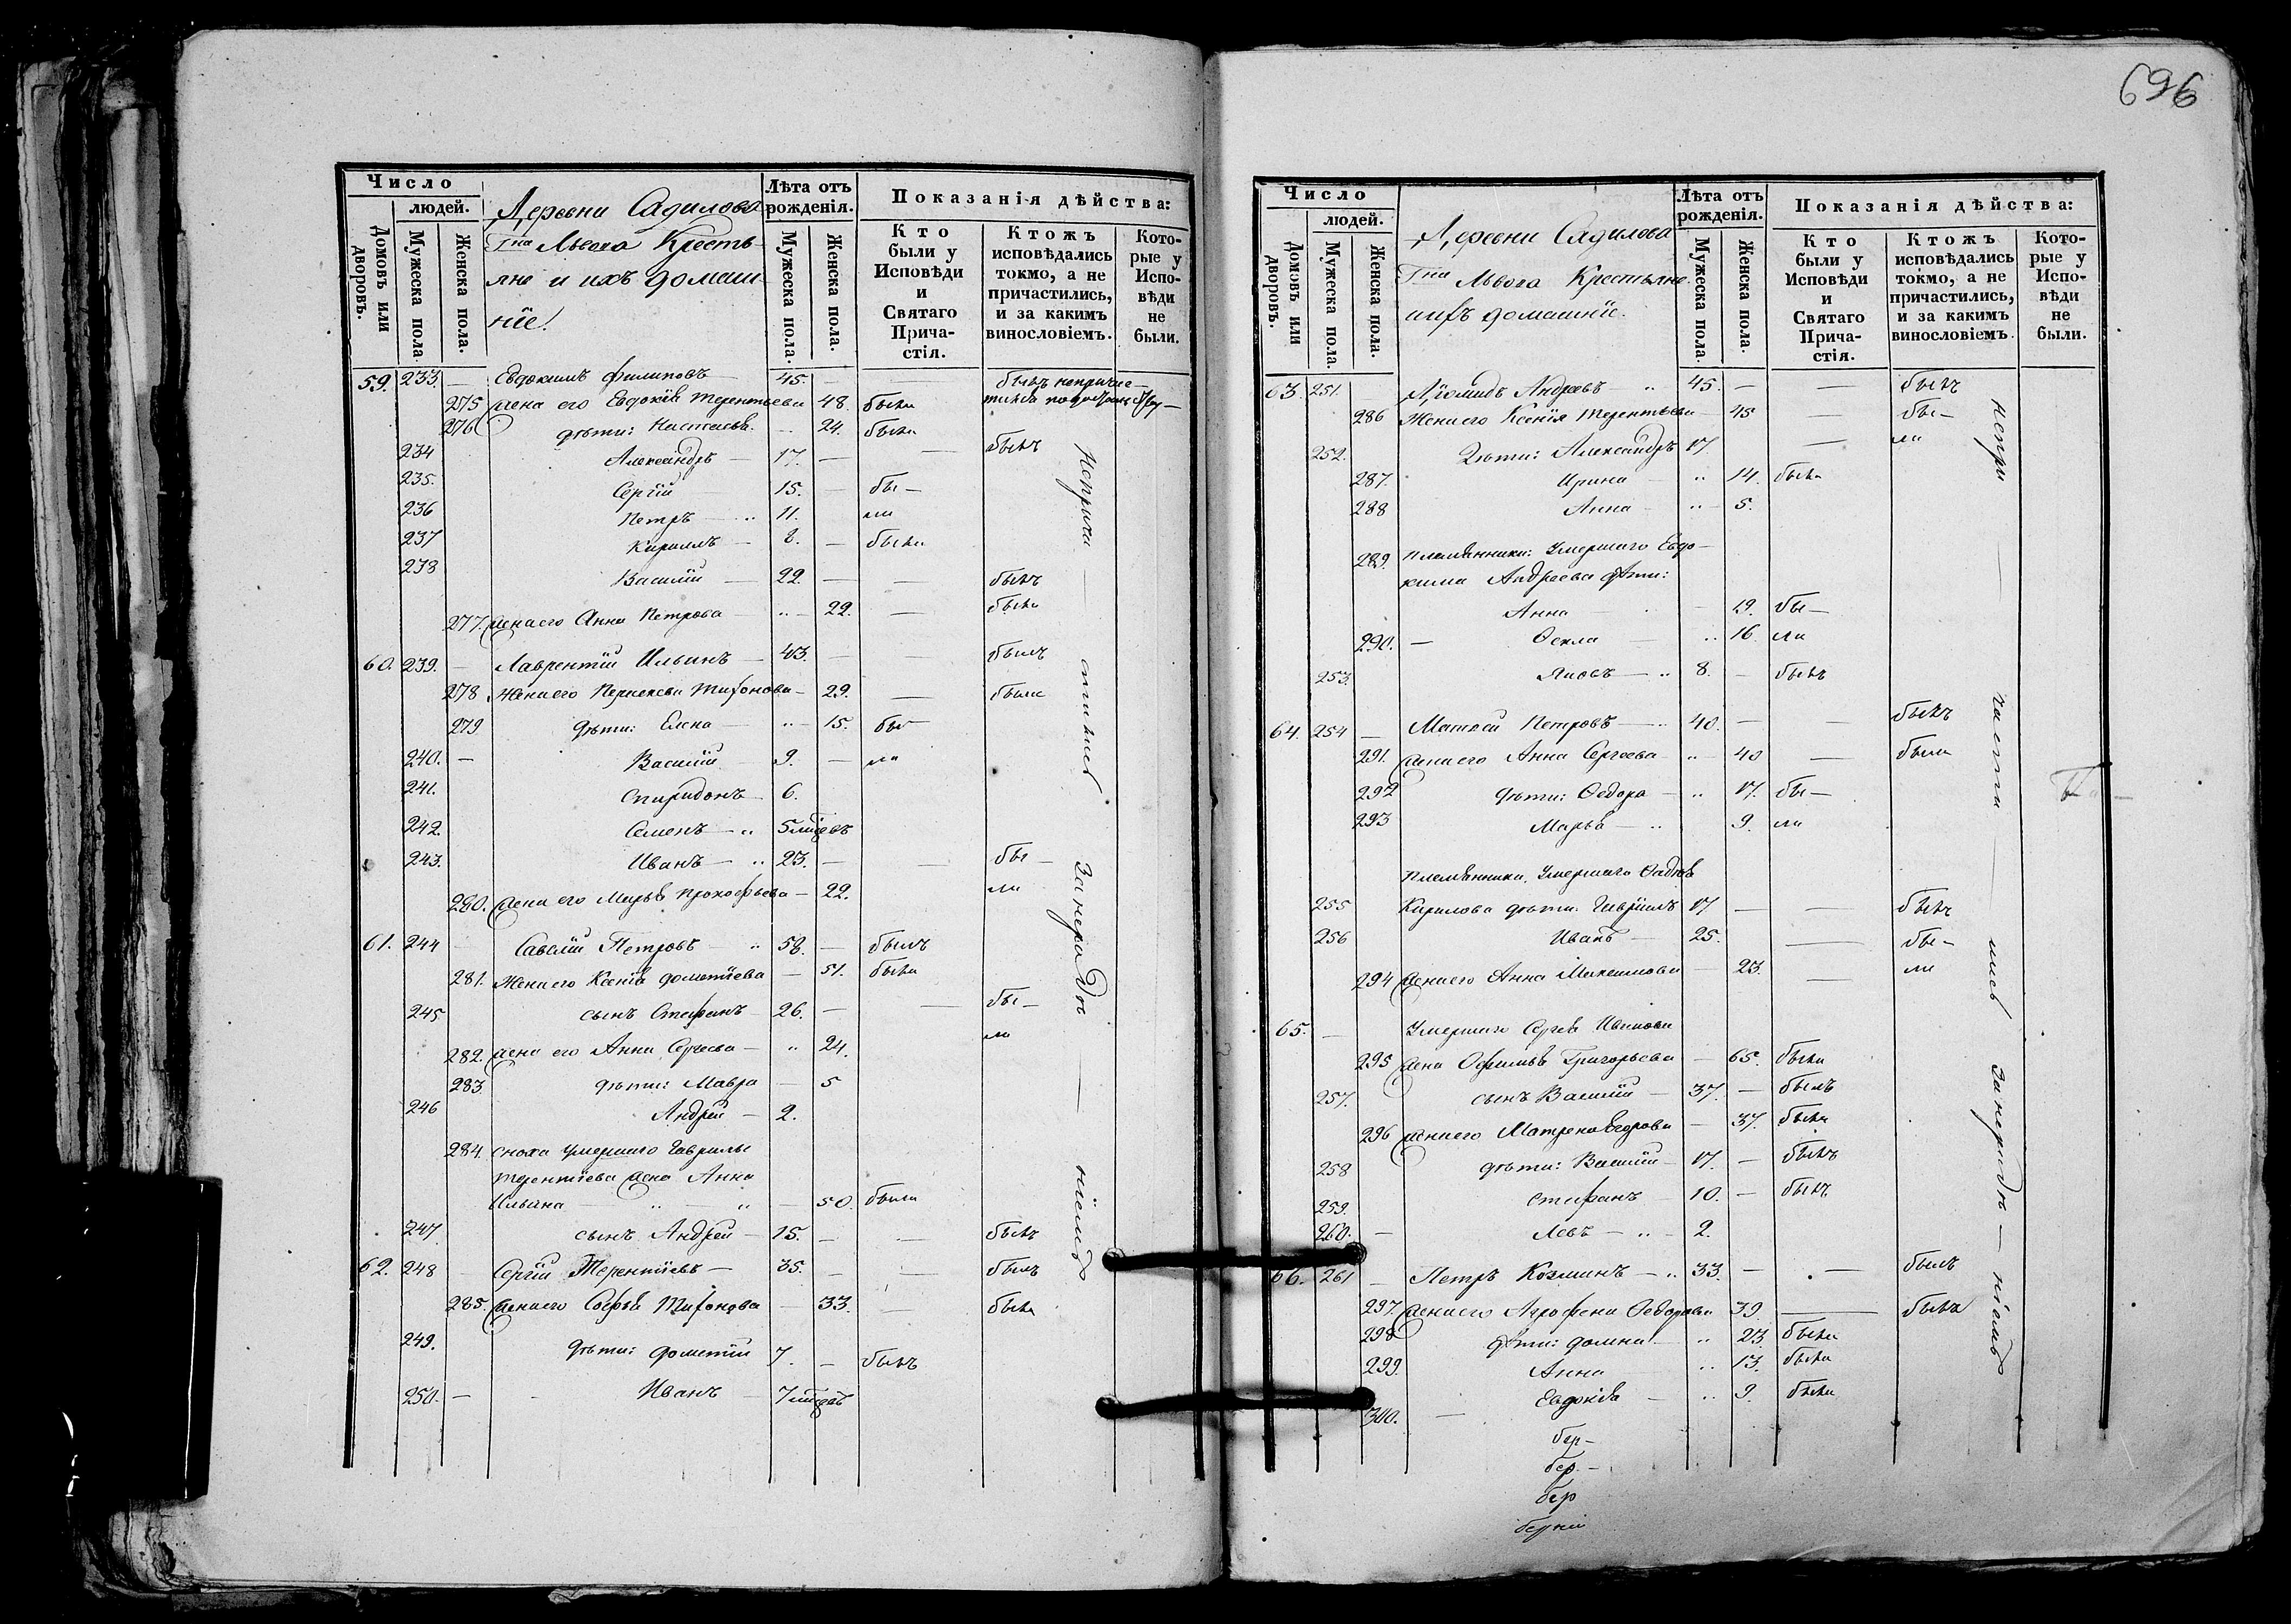 696
Число
людей.
Домовъ или дворовъ.
Мужеска пола.
Женска пола.
Деревни Садилова
Гна Львова Кресть-
яне и ихъ домаш-
ніе.
Лѣта отъ рожденія.
Мужеска пола.
Женска пола.
Показанія дѣйства:
Кто были у Исповѣди и Святаго Прича-стія.
Ктожъ исповѣдались токмо, а не причастились, и за какимъ винословіемъ.
Кото-рые у Испо-вѣди не были.
59. 233. — Евдокимъ Филиповъ — 45. — — былъ неприча-
275 жена его Евдокія Терентьева 48. была
276 дѣти: Настасья .. 24. была
234 Александръ — 17. — — былъ
235. Сергій 15. — бы —
236 Петръ — .. 11. ли
237 Кириллъ — 8. — была
238 Василій — 22. — — былъ
277. жена его Анна Петрова — .. — 22. — была
60. 239. — Лаврентій Ильинъ — 43. — — былъ
278 Жена его Тихонова — 29. — была
279 дѣти: Елена — .. 15. бы
240. — Василій 9. — ли
241. Спиридонъ 6.
242. Семенъ — .. 5 мѣсяцъ
243. Иванъ — .. 23. — — бы —
280. жена его Марья Прокофьева — 22. ли
61. 244 — Савелій Петровъ — .. 58. — былъ
281. Жена его Ксенія Дометіева — 51. была
245 сынъ Стефанъ — 26. — — бы —
282. жена его Анна Сергеева — .. 24. ли
283 дѣти: Мавра — 5
246 Андрей — 2.
284. сноха умершаго Гаврилы
Терентіева жена Анна
Ильина — .. — .. — 50. была
247 сынъ Андрей — 15. — — былъ
62. 248 — Сергій Терентіевъ — 35. — — былъ
285. жена его Софья Тихонова — 33. — была
249. дѣти: Дометій 7. — былъ
250. — Иванъ — 7 мѣсяцъ
неприча — стился за нерадѣ — ніемъ
Число
людей.
Домовъ или дворовъ.
Мужеска пола.
Женска пола.
Деревни Садилова
Гна Львова Крестьяне
ихъ домашніе.
Лѣта отъ рожденія.
Мужеска пола.
Женска пола.
Показанія дѣйства:
Кто были у Исповѣди и Святаго Прича-стія.
Ктожъ исповѣдались токмо, а не причастились, и за какимъ винословіемъ.
Кото-рые у Испо-вѣди не были.
63. 251. Діомидъ Андреевъ — .. 45. — — былъ
286 Жена его Ксенія Терентьева — 45 — бы —
252. Дѣти: Александръ 17. — ли
287. Ирина — .. 14. была
288 Анна — .. 5.
289. племянники: Умершаго Евдо-
кима Андреева дѣти:
Анна — 19. бы —
290. — Фекла .. 16. ли
253. Яковъ — .. 8. — былъ
64. 254 — Матвей Петровъ — .. 40. — — былъ
291. жена его Анна Сергеева .. 40 — была
292 дѣти: Федора — .. 17. бы —
293 Марья — .. 9. ли
племянники, Умершаго
255 Кирилова дѣти: Гаврiилъ 17 — — былъ
256 Иванъ — 25. — бы —
294 жена его Анна Максимова — 23. — ли
65. — Умершаго Сергея Иванова
295 жена Офимья Григорьева — 65. была
257. сынъ Василій — 37. — былъ
296 жена его Матрена Егорова — 37. была
258 дѣти: Василій — 17. — былъ
259. Стефанъ 10. — былъ
260. — Левъ — .. 2.
66. 261 — Петръ Козминъ — .. 33. — — былъ
297. жена его Агрофена Федорова 39 — была
298 дѣти: Домна .. 23 была
299. Анна .. 13. была
300. — Евдокія — .. 9. была
бер-
бер-
бер
непри — части — лись за нерадѣ — ніемъ